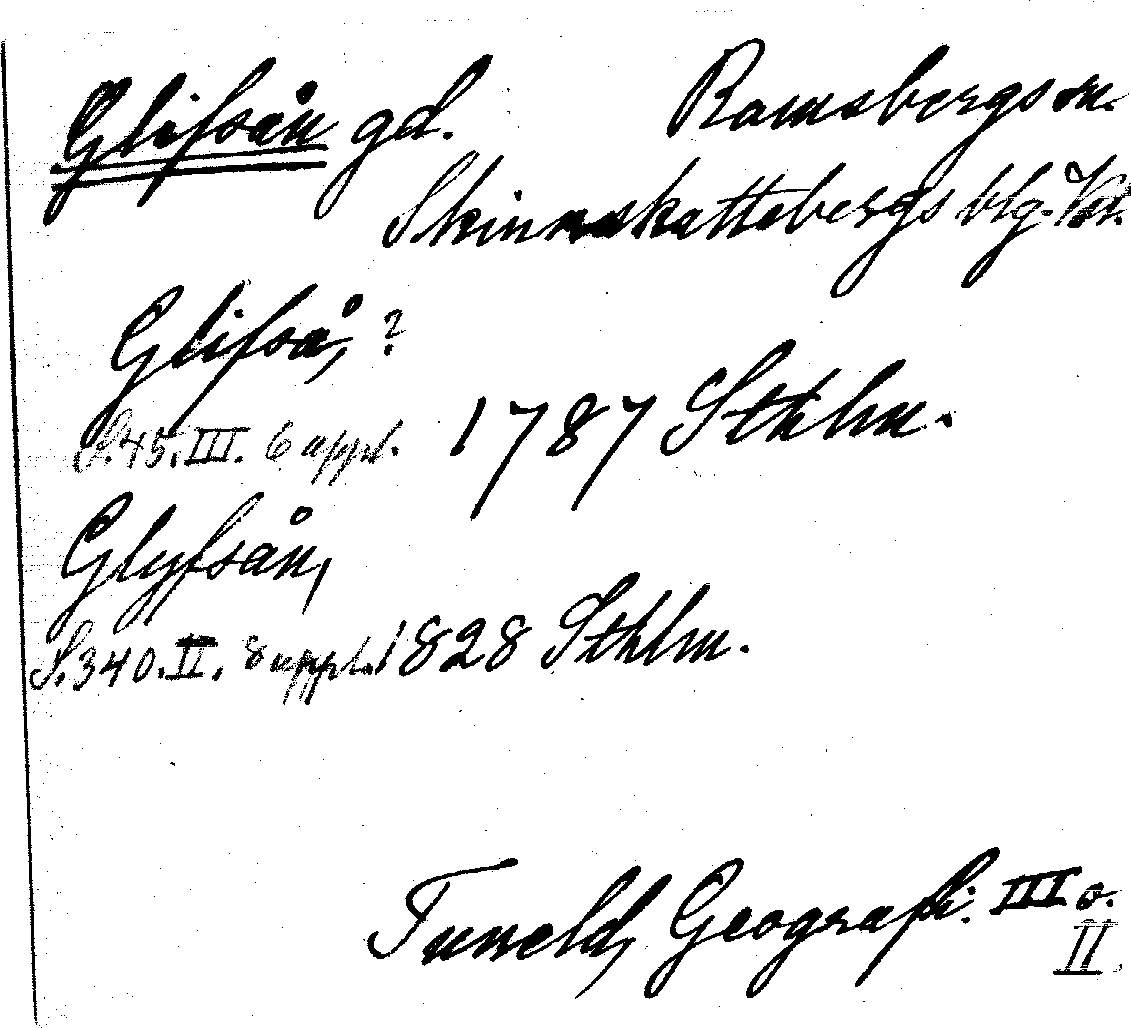 Glifsån gd. Ramsbergs sn.
Skinnskattebergs blg. Vstm.
Glifså, ?
S. 45. III. 6 uppl. 1787 Sthlm.
Glyfsån,
S. 340. II. 8 uppl. 1828 Sthlm.
Tuneld, Geografi. III o.
II.